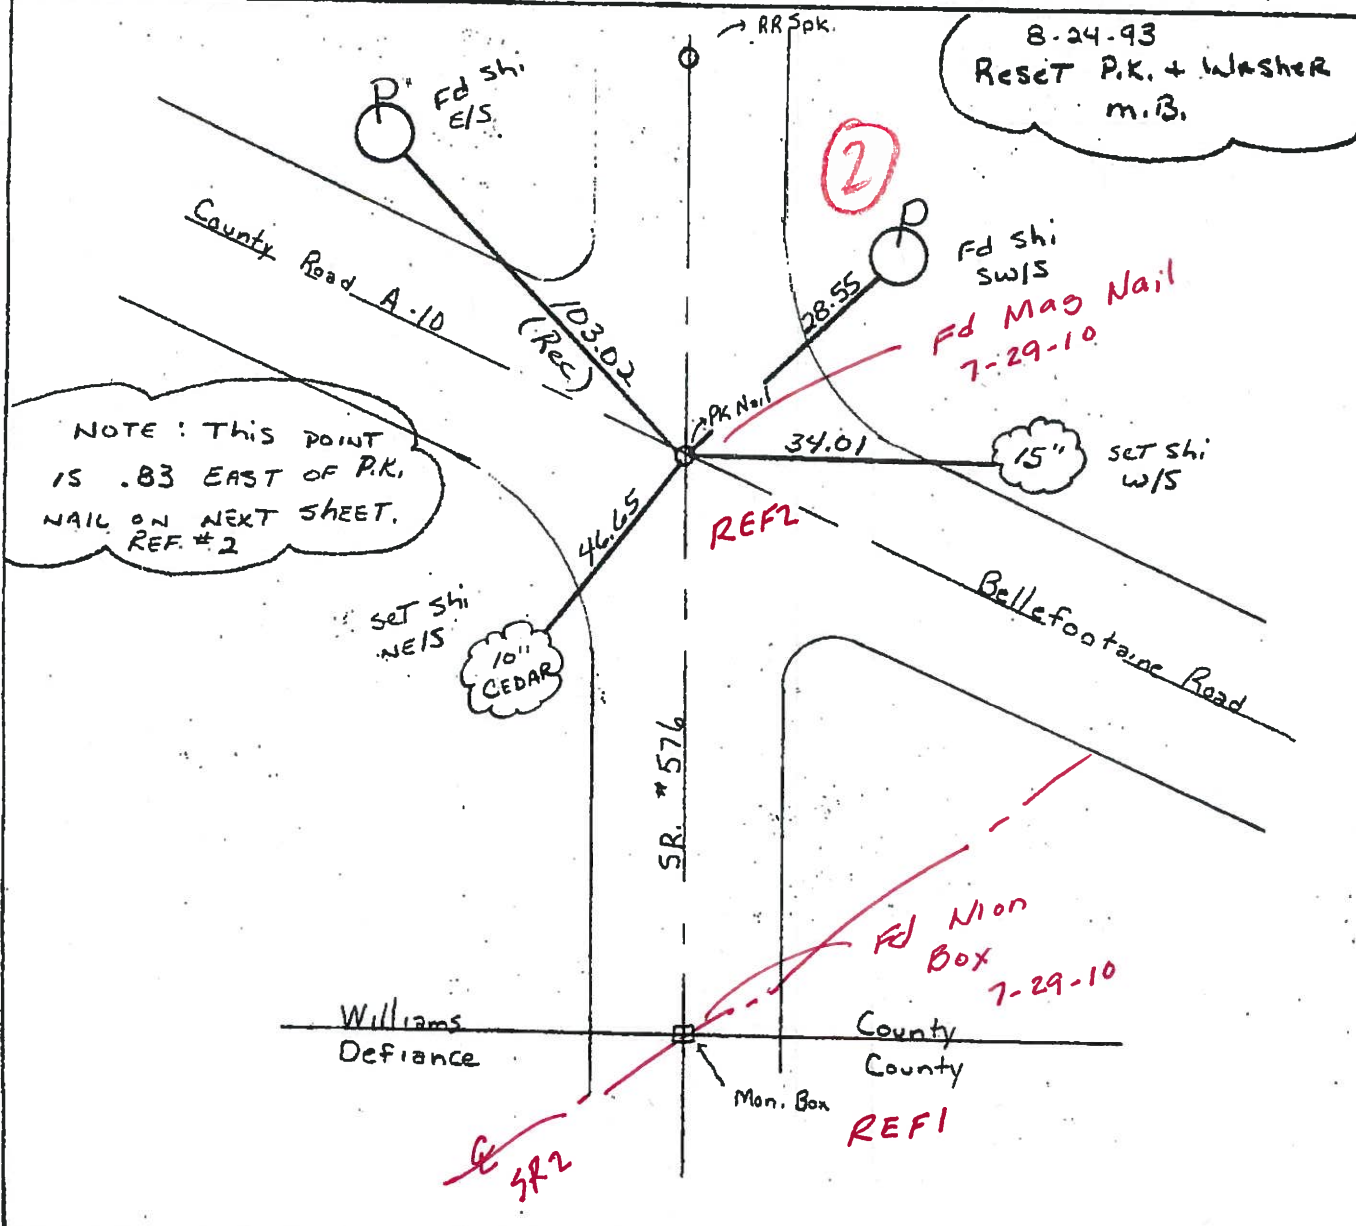 RR Spk.
8-24-93
Reset P.K. + Washer
M.B.
P
Fd Shi
E/S
2
P
Fd Shi
SW/S
28.55
Fd Mag Nail
7-29-10
County Road A.10
103.02
(Rec)
PK Nail
34.01
15"
set Shi
W/S
NOTE: This point
is .83 East of P.K.
Nail on next sheet.
Ref. #2
REF2
46.65
set Shi
NE/S
10"
CEDAR
Bellefontaine Road
SR. #576
Fd Mon
Box
7-29-10
Williams County
Defiance County
Mon. Box
REF1
℄
SR2